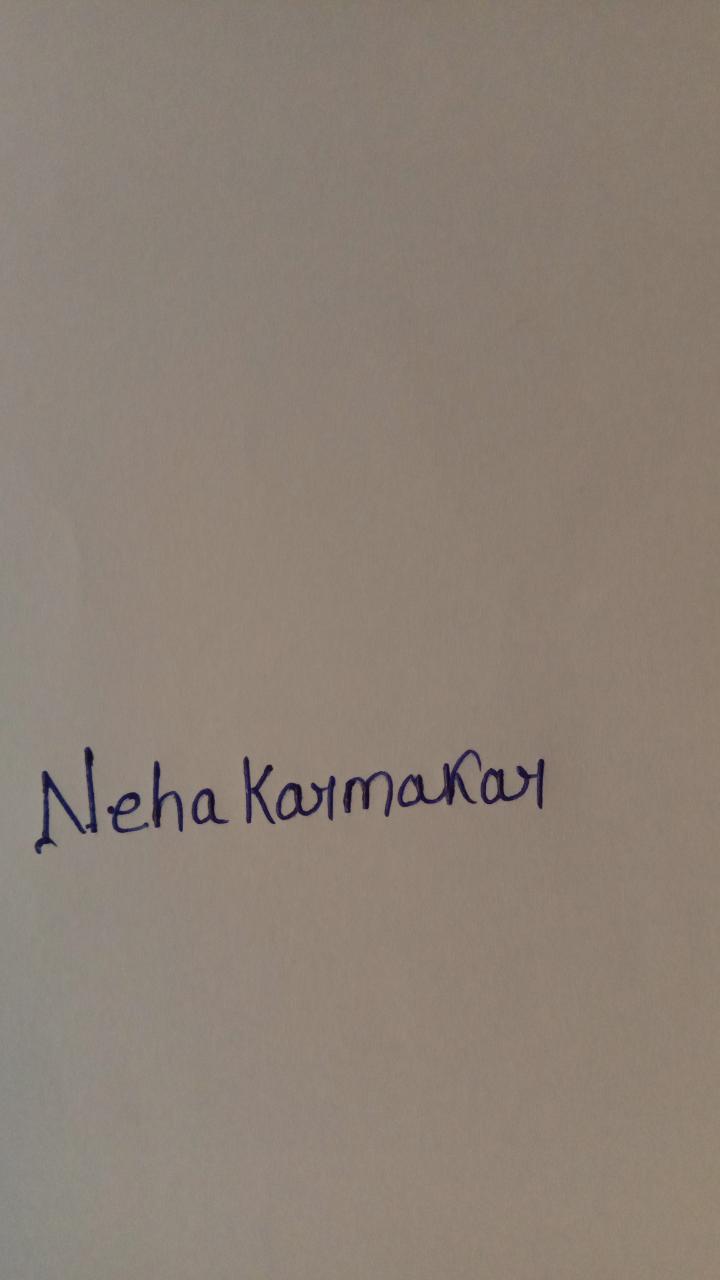 Neha Karmakar